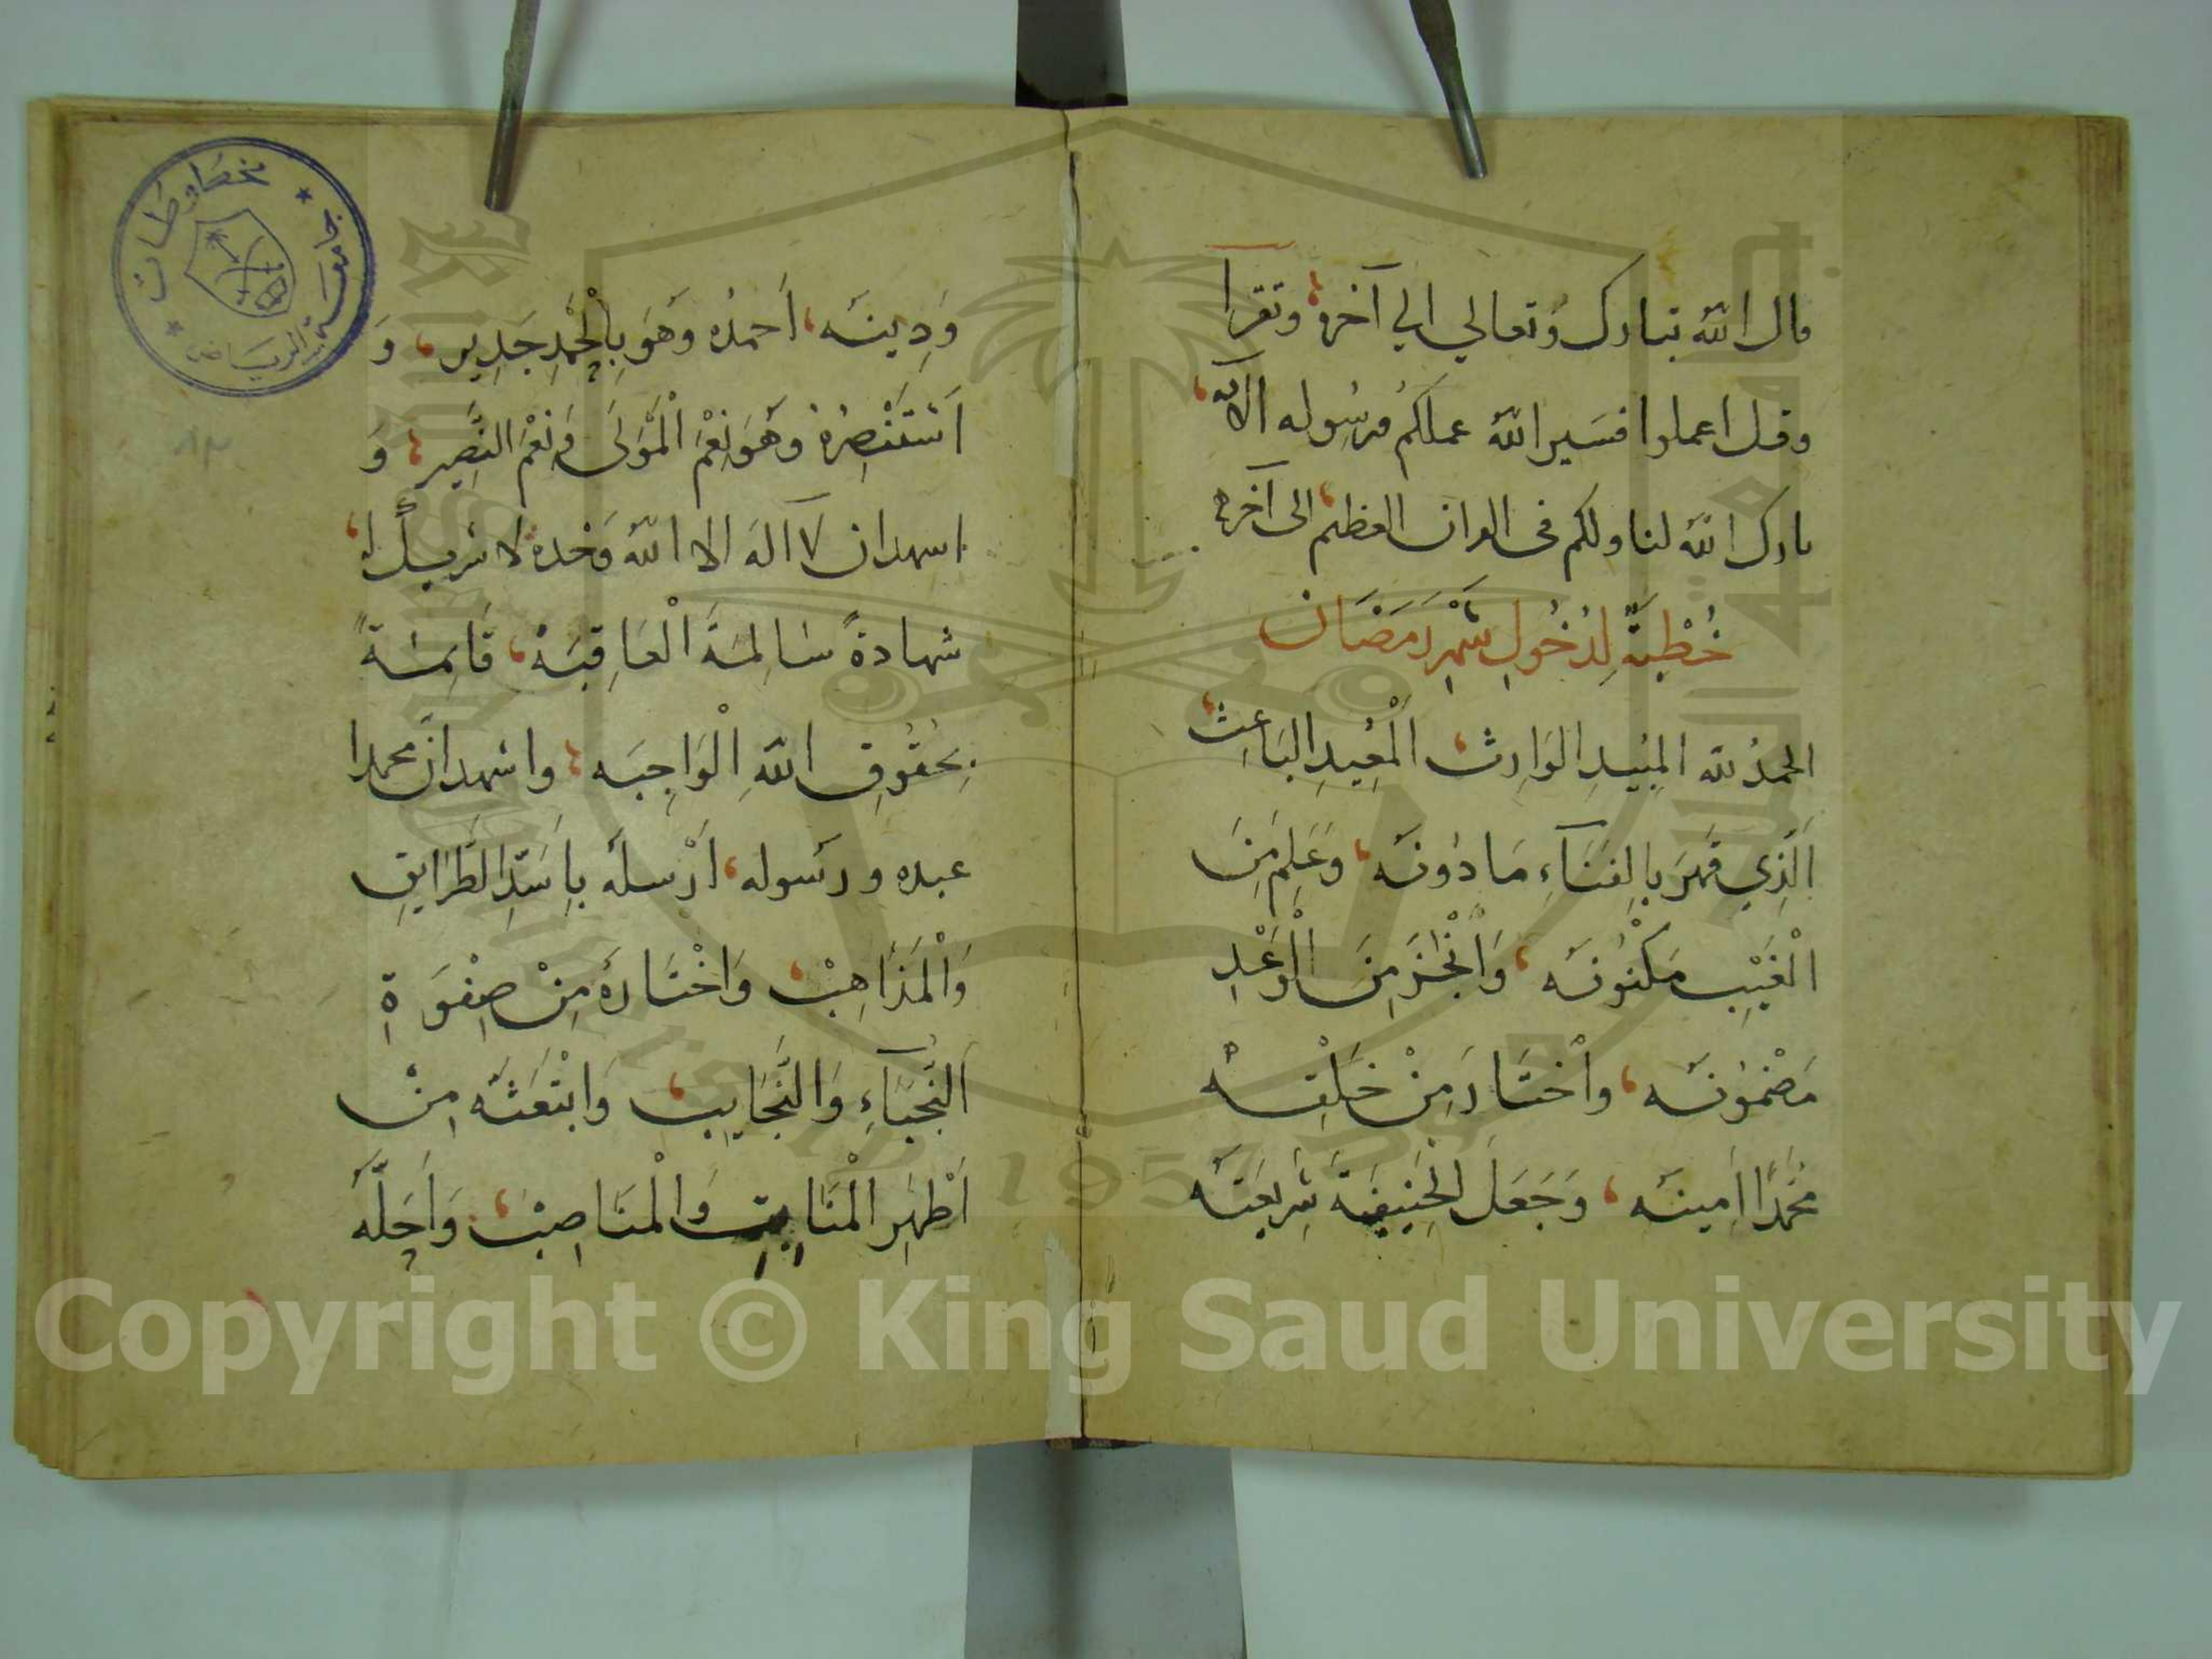 قال الله تبارك وتعالي الي آخره وتقرا
وقل اعملوا فسير الله عملكم ورسوله الآية
بارك الله لنا ولكم فى القران العظيم الى آخره
خُطْبَةٌ لِدُخُولِ شَهْرِ رَمَضَان
الحمدُ لله المُبِيدِ الوَارِثِ الْمُعِيدِ البَاعِثِ
الَّذِي قَهَرَ بِالفَنَآءِ مَا دُونَه وَعَلِمَ مِنَ
الْغَيْبِ مَكْنُونَه وَانْجَزَ مِنَ الْوَعْدِ
مَضْمُونَه وَاخْتَارَ مِنْ خَلْقِه
مُحَمَّدًا اَمِينَه وَجَعَلَ الحَنِيفِيَّةَ شَرِيعَتَه
وَدِينَه اَحمدُه وَهُوَ بِالْحَمْدِ جَدِير وَ
اَسْتَنْصِرُهُ وَهُوَ نِعْمَ الْمَوْلَى وَنِعْمَ النَّصِير وَ
اشهد ان لا آله الا الله وَحْده لا شريك له
شهادةً سَالِمَةَ الْعَاقِبَه قَائِمَةً
بِحُقُوقِ اللهِ الْوَاجِبَه واشهد انَّ محمدا
عبده ورسوله اَرْسله بِاَسَدِّ الطَّرَايِقِ
وَالْمَذَاهِبْ وَاخْتَارَهُ مِنْ صِفْوَةِ
النُّجَبَآءِ وَالنَّجَايِبْ وَابْتَعَثَه مِنْ
اَطْهَرِ الْمَنَابِتِ وَالْمَنَاصِبْ وَاَحَلَّهُ
مخطوطات
جامعة الرياض
Copyright © King Saud University
1957